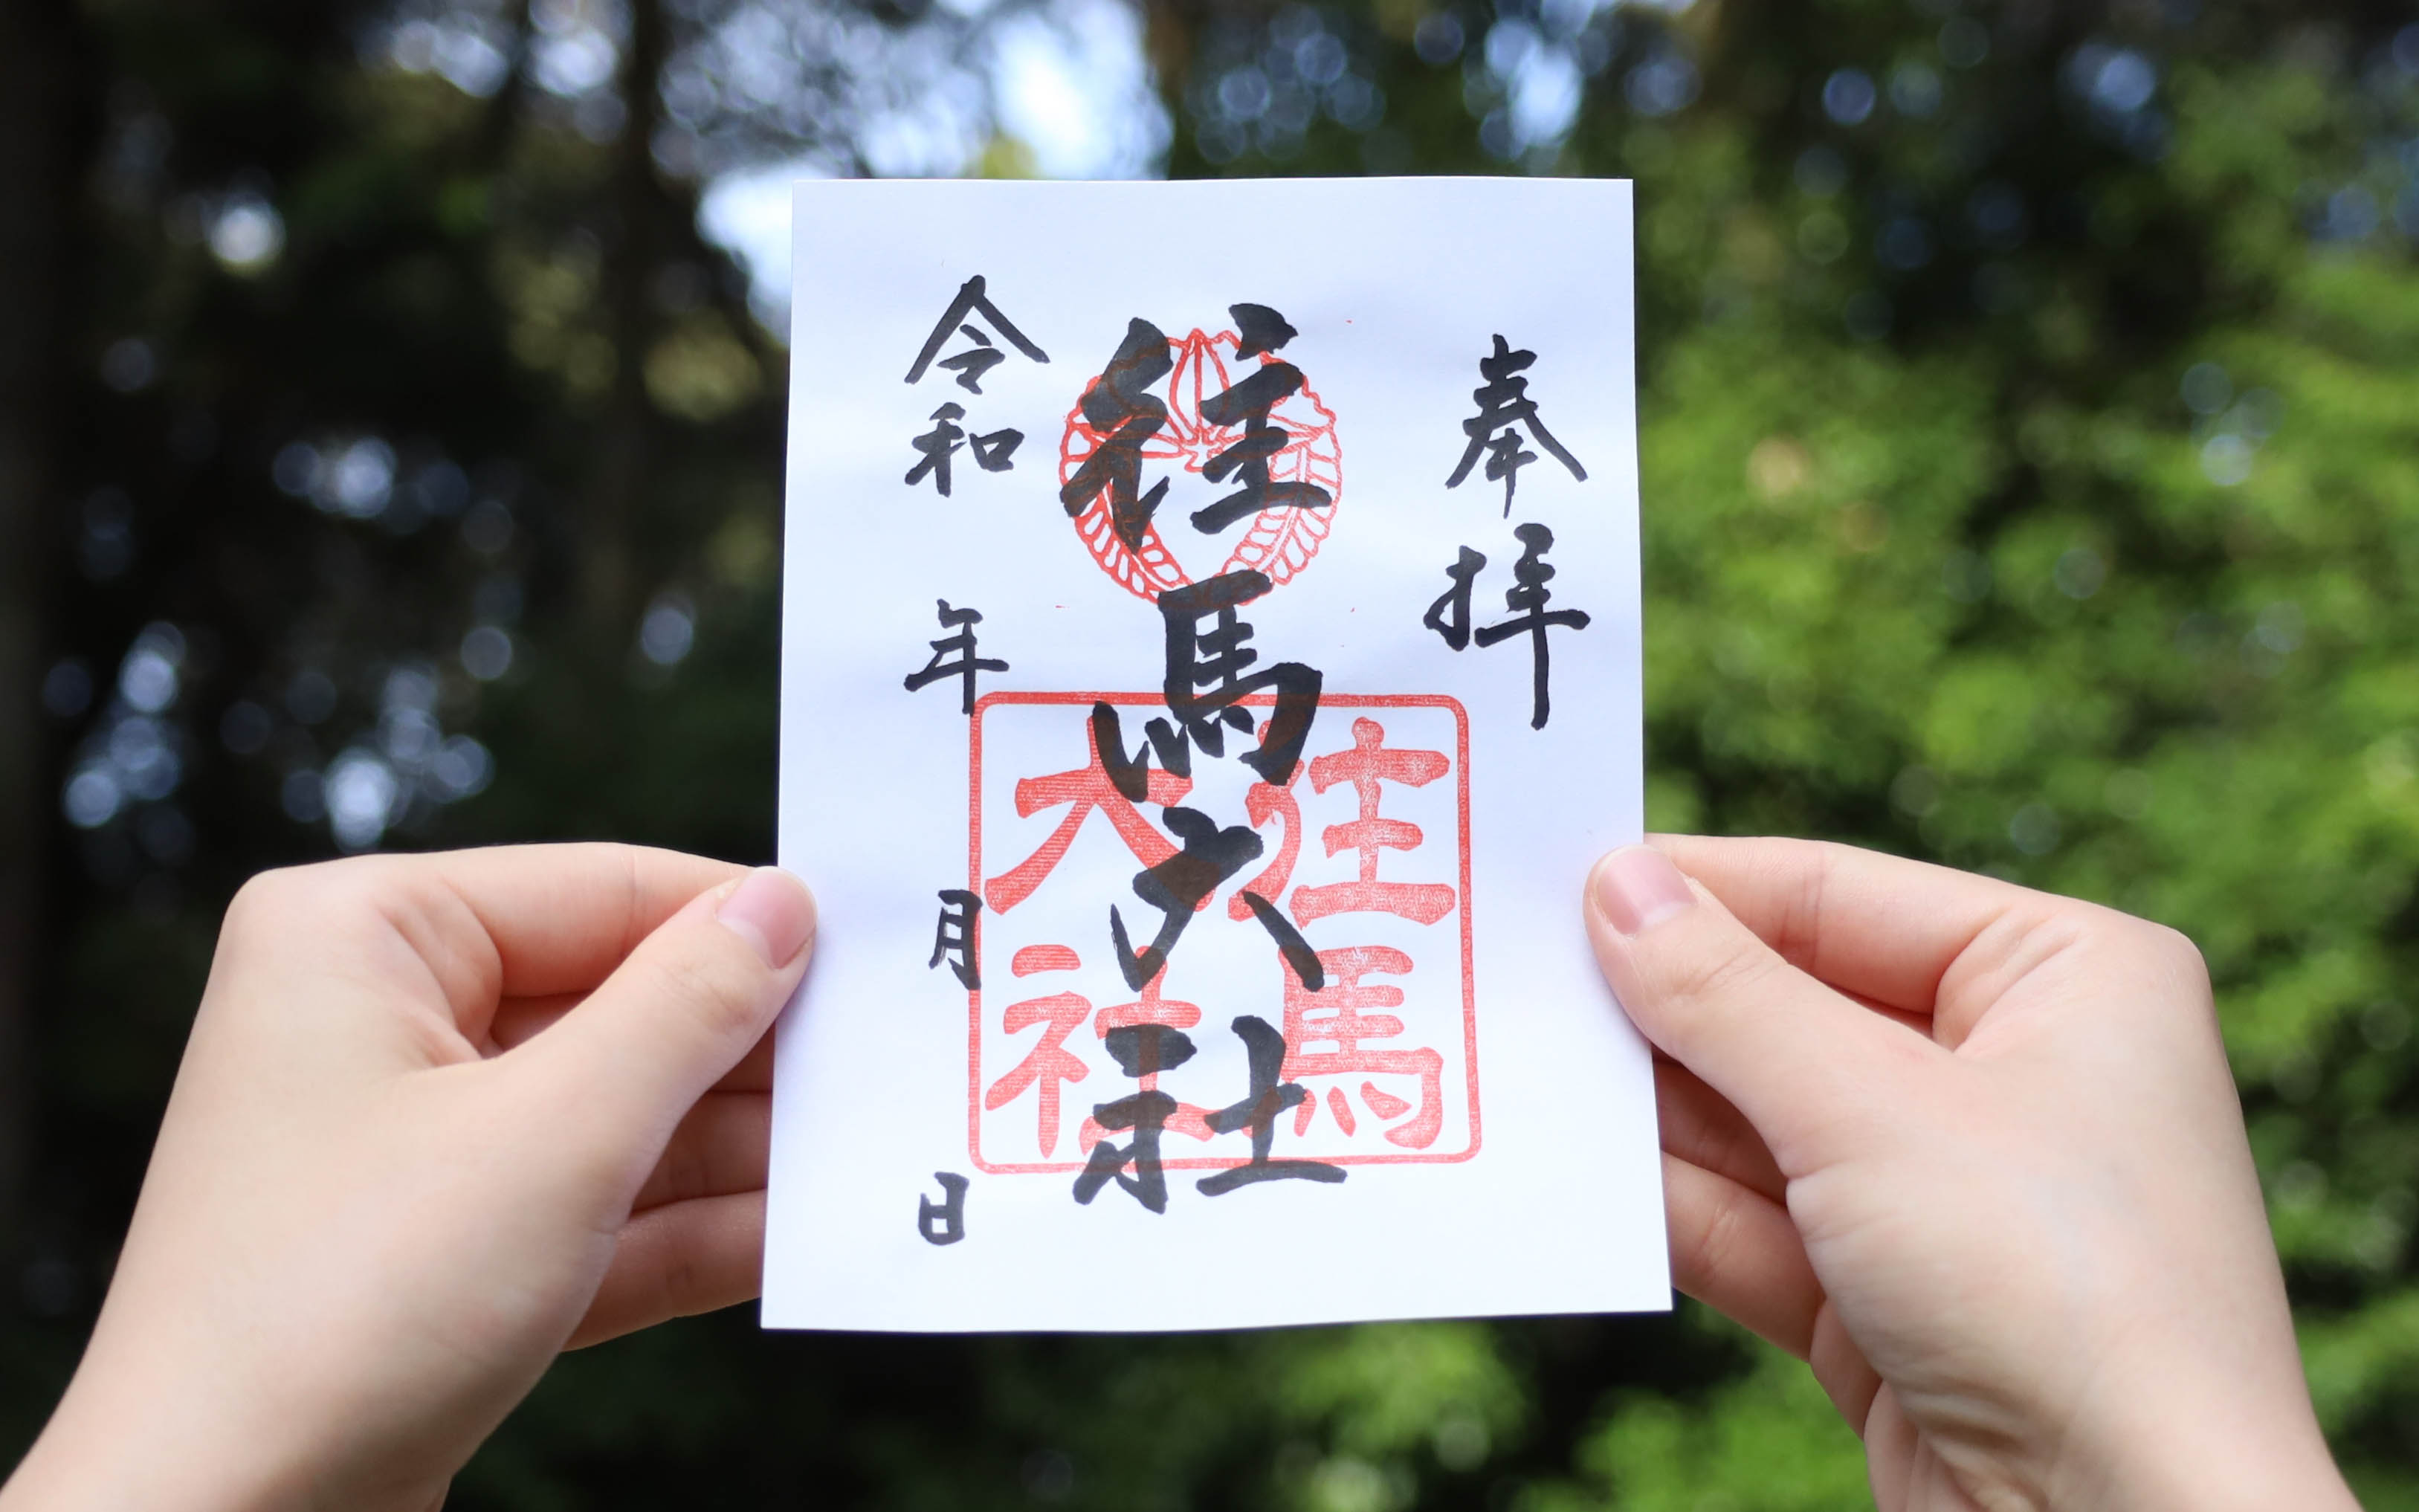 奉拝
往馬大社
往馬
大社
令和 年 月 日